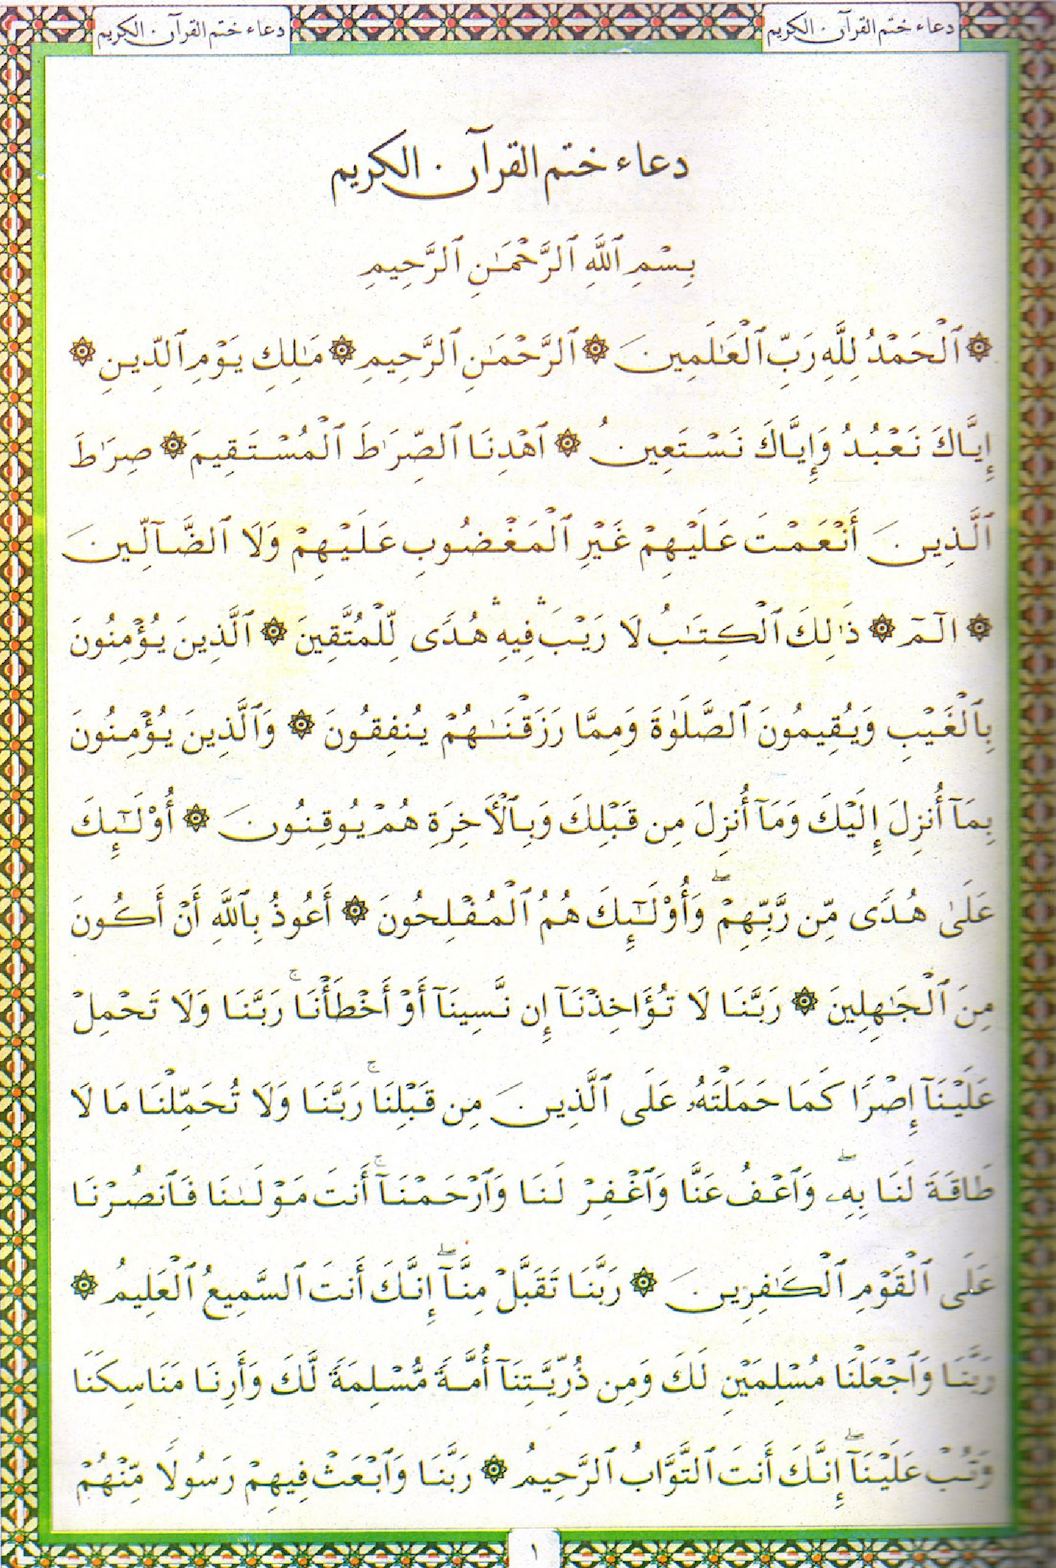 دعاء ختم القرآن الكريم
دعاء ختم القرآن الكريم
دعاء ختم القرآن الكريم
بِسْمِ ٱللَّهِ ٱلرَّحْمَٰنِ ٱلرَّحِيمِ
۞ ٱلْحَمْدُ لِلَّهِ رَبِّ ٱلْعَٰلَمِينَ ۞ ٱلرَّحْمَٰنِ ٱلرَّحِيمِ ۞ مَٰلِكِ يَوْمِ ٱلدِّينِ ۞
إِيَّاكَ نَعْبُدُ وَإِيَّاكَ نَسْتَعِينُ ۞ ٱهْدِنَا ٱلصِّرَٰطَ ٱلْمُسْتَقِيمَ ۞ صِرَٰطَ
ٱلَّذِينَ أَنْعَمْتَ عَلَيْهِمْ غَيْرِ ٱلْمَغْضُوبِ عَلَيْهِمْ وَلَا ٱلضَّآلِّينَ
۞ الٓمٓ ۞ ذَٰلِكَ ٱلْكِتَٰبُ لَا رَيْبَ ۛ فِيهِ ۛ هُدًى لِّلْمُتَّقِينَ ۞ ٱلَّذِينَ يُؤْمِنُونَ
بِٱلْغَيْبِ وَيُقِيمُونَ ٱلصَّلَوٰةَ وَمِمَّا رَزَقْنَٰهُمْ يُنفِقُونَ ۞ وَٱلَّذِينَ يُؤْمِنُونَ
بِمَآ أُنزِلَ إِلَيْكَ وَمَآ أُنزِلَ مِن قَبْلِكَ وَبِٱلْأَخِرَةِ هُمْ يُوقِنُونَ ۞ أُوْلَٰٓئِكَ
عَلَىٰ هُدًى مِّن رَّبِّهِمْ ۖ وَأُوْلَٰٓئِكَ هُمُ ٱلْمُفْلِحُونَ ۞ أَعُوذُ بِٱللَّهِ أَنْ أَكُونَ
مِنَ ٱلْجَٰهِلِينَ ۞ رَبَّنَا لَا تُؤَاخِذْنَآ إِن نَّسِينَآ أَوْ أَخْطَأْنَا ۚ رَبَّنَا وَلَا تَحْمِلْ
عَلَيْنَآ إِصْرًا كَمَا حَمَلْتَهُۥ عَلَى ٱلَّذِينَ مِن قَبْلِنَا ۚ رَبَّنَا وَلَا تُحَمِّلْنَا مَا لَا
طَاقَةَ لَنَا بِهِۦ ۖ وَٱعْفُ عَنَّا وَٱغْفِرْ لَنَا وَٱرْحَمْنَآ ۚ أَنتَ مَوْلَىٰنَا فَٱنصُرْنَا
عَلَى ٱلْقَوْمِ ٱلْكَٰفِرِينَ ۞ رَبَّنَا تَقَبَّلْ مِنَّآ ۖ إِنَّكَ أَنتَ ٱلسَّمِيعُ ٱلْعَلِيمُ ۞
رَبَّنَا وَٱجْعَلْنَا مُسْلِمَيْنِ لَكَ وَمِن ذُرِّيَّتِنَآ أُمَّةً مُّسْلِمَةً لَّكَ وَأَرِنَا مَنَاسِكَنَا
وَتُبْ عَلَيْنَآ ۖ إِنَّكَ أَنتَ ٱلتَّوَّابُ ٱلرَّحِيمُ ۞ رَبَّنَا وَٱبْعَثْ فِيهِمْ رَسُولًا مِّنْهُمْ
١